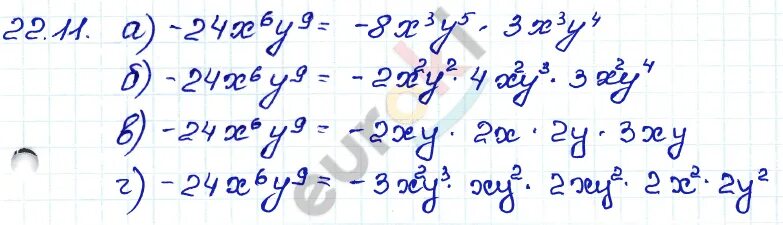 22.11. а) -24x⁶y⁹ = -8x³y⁵ · 3x³y⁴
б) -24x⁶y⁹ = -2x²y² · 4x²y³ · 3x²y⁴
в) -24x⁶y⁹ = -2xy · 2x · 2y · 3xy
г) -24x⁶y⁹ = -3x²y³ · xy² · 2xy² · 2x² · 2y²
euroki